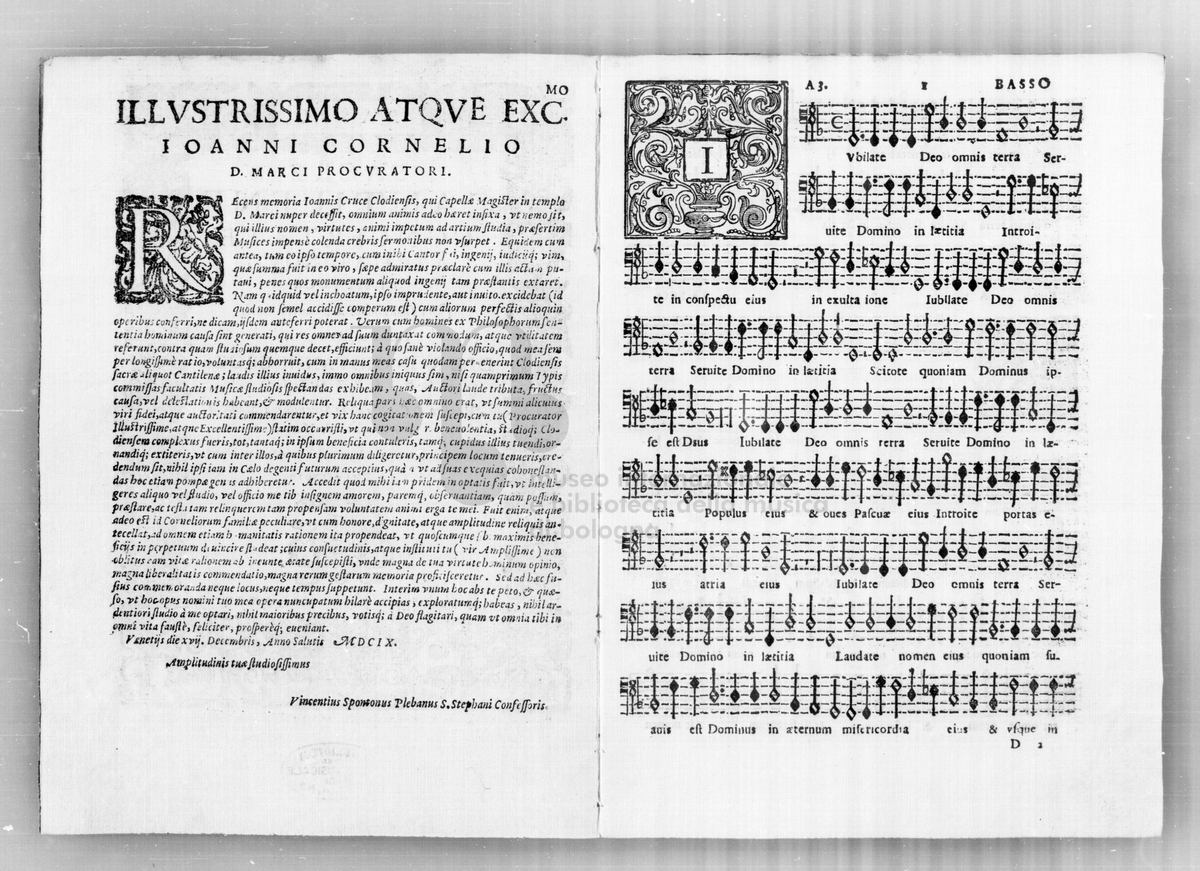 MO
ILLVSTRISSIMO ATQVE EXC.
IOANNI CORNELIO
D. MARCI PROCVRATORI.
REcens memoria Ioannis Cruce Clodiensis, qui Capellæ Magister in templo
D. Marci nuper decessit, omnium animis adeo hæret infixa, vt nemo sit,
qui illius nomen, virtutes, animi impetum ad artium studia, præsertim
Musices impensè colenda crebris sermonibus non vsurpet. Equidem cum
antea, tum eo ipso tempore, cum inibi Cantor fui, ingenij, iudicijq; vim,
quæ summa fuit in eo viro, sæpe admiratus præclarè cum illis actam pu-
taui, penes quos monumentum aliquod ingenij tam præstantis extaret.
Nam quidquid vel inchoatum, ipso imprudente, aut inuito. excidebat (id
quod non semel accidisse compertum est) cum aliorum perfectis alioquin
operibus conferri, ne dicam, ijsdem anteferri poterat. Verum cum homines ex Philosophorum sen-
tentia hominum causa sint generati, qui res omnes ad suum duntaxat commodum, atque vtilitatem
referunt, contra quam studiosum quemque decet, efficiunt; à quo sanè violando officio, quod mea sem
per longissimè ratio, voluntasq; abhorruit, cum in manus meas casu quodam peruenerint Clodiensis
sacræ aliquot Cantilenæ; laudis illius inuidus, immo omnibus iniquus sim, nisi quamprimum Typis
commissas facultatis Musicæ studiosis spectandas exhibeam, quas, Auctori laude tributa, fructus
causa, vel delectationis habeant, & modulentur. Reliqua pars hæc omnino erat, vt summi alicuius
viri fidei, atque auctoritati commendarentur, et vix hanc cogitationem suscepi, cum tu (Procurator
Illustrissime, atque Excellentissime) statim occurristi, vt qui non vulgari beneuolentia, studioq; Clo-
diensem complexus fueris, tot, tantaq; in ipsum beneficia contuleris, tamq; cupidus illius tuendi, or-
nandiq; extiteris, vt cum inter illos, à quibus plurimum diligeretur, principem locum tenueris, cre-
dendum sit, nihil ipsi iam in Cælo degenti futurum acceptius, quàm vt ad suas exequias cohonestan-
das hoc etiam pompæ genus adhiberetur. Accedit quod mihi iam pridem in optatis fuit, vt intelli-
geres aliquo vel studio, vel officio me tibi insignem amorem, paremq; obseruantiam, quam possum,
præstare, ac testatam relinquerem tam propensam voluntatem animi erga te mei. Fuit enim, atque
adeo est id Corneliorum familiæ peculiare, vt cum honore, dignitate, atque amplitudine reliquis an-
tecellat, ad omnem etiam humanitatis rationem ita propendeat, vt quoscumque sibi maximis bene-
ficijs in perpetuum deuincire studeat; cuius consuetudinis, atque instituti tu (vir Amplissime) non
oblitus eam vitæ rationem ab ineunte ætate suscepisti, vnde magna de tua virtute hominum opinio,
magna liberalitatis commendatio, magna rerum gestarum memoria proficisceretur. Sed ad hæc fu-
sius commemoranda neque locus, neque tempus suppetunt. Interim vnum hoc abs te peto, & quæ-
so, vt hoc opus nomini tuo mea opera nuncupatum hilarè accipias, exploratumq; habeas, nihil ar-
dentiori studio à me optari, nihil maioribus precibus, votisq; à Deo flagitari, quam vt omnia tibi in
omni vita faustè, feliciter, prosperèq; eueniant.
Venetijs die xvij. Decembris, Anno Salutis MDCIX.
Amplitudinis tuæ studiosissimus
Vincentius Spontonus Plebanus S. Stephani Confessoris.
A 3. 1 BASSO
I Vbilate Deo omnis terra Ser-
uite Domino in lætitia Introi-
te in conspectu eius in exulta ione Iubilate Deo omnis
terra Seruite Domino in lætitia Scitote quoniam Dominus ip-
se est Dsus Iubilate Deo omnis rerra Seruite Domino in læ-
titia Populus eius & oues Pascuæ eius Introite portas e-
ius atria eius Iubilate Deo emnis terra Ser-
uite Domino in lætitia Laudate nomen eius quoniam su-
auis est Dominus in æternum misericordia eius & vsque in
D 2
museo
biblioteca della musica
bologna